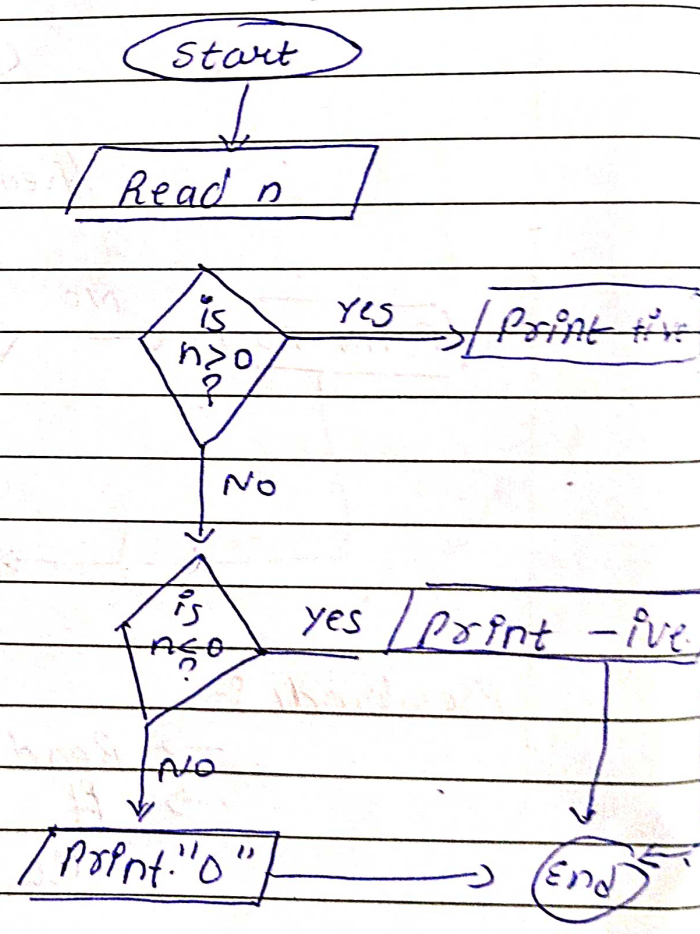 Start
Read n
is
n>0
?
Yes
Print +ive
NO
is
n<0
?
yes
Print -ive
NO
Print "0"
End